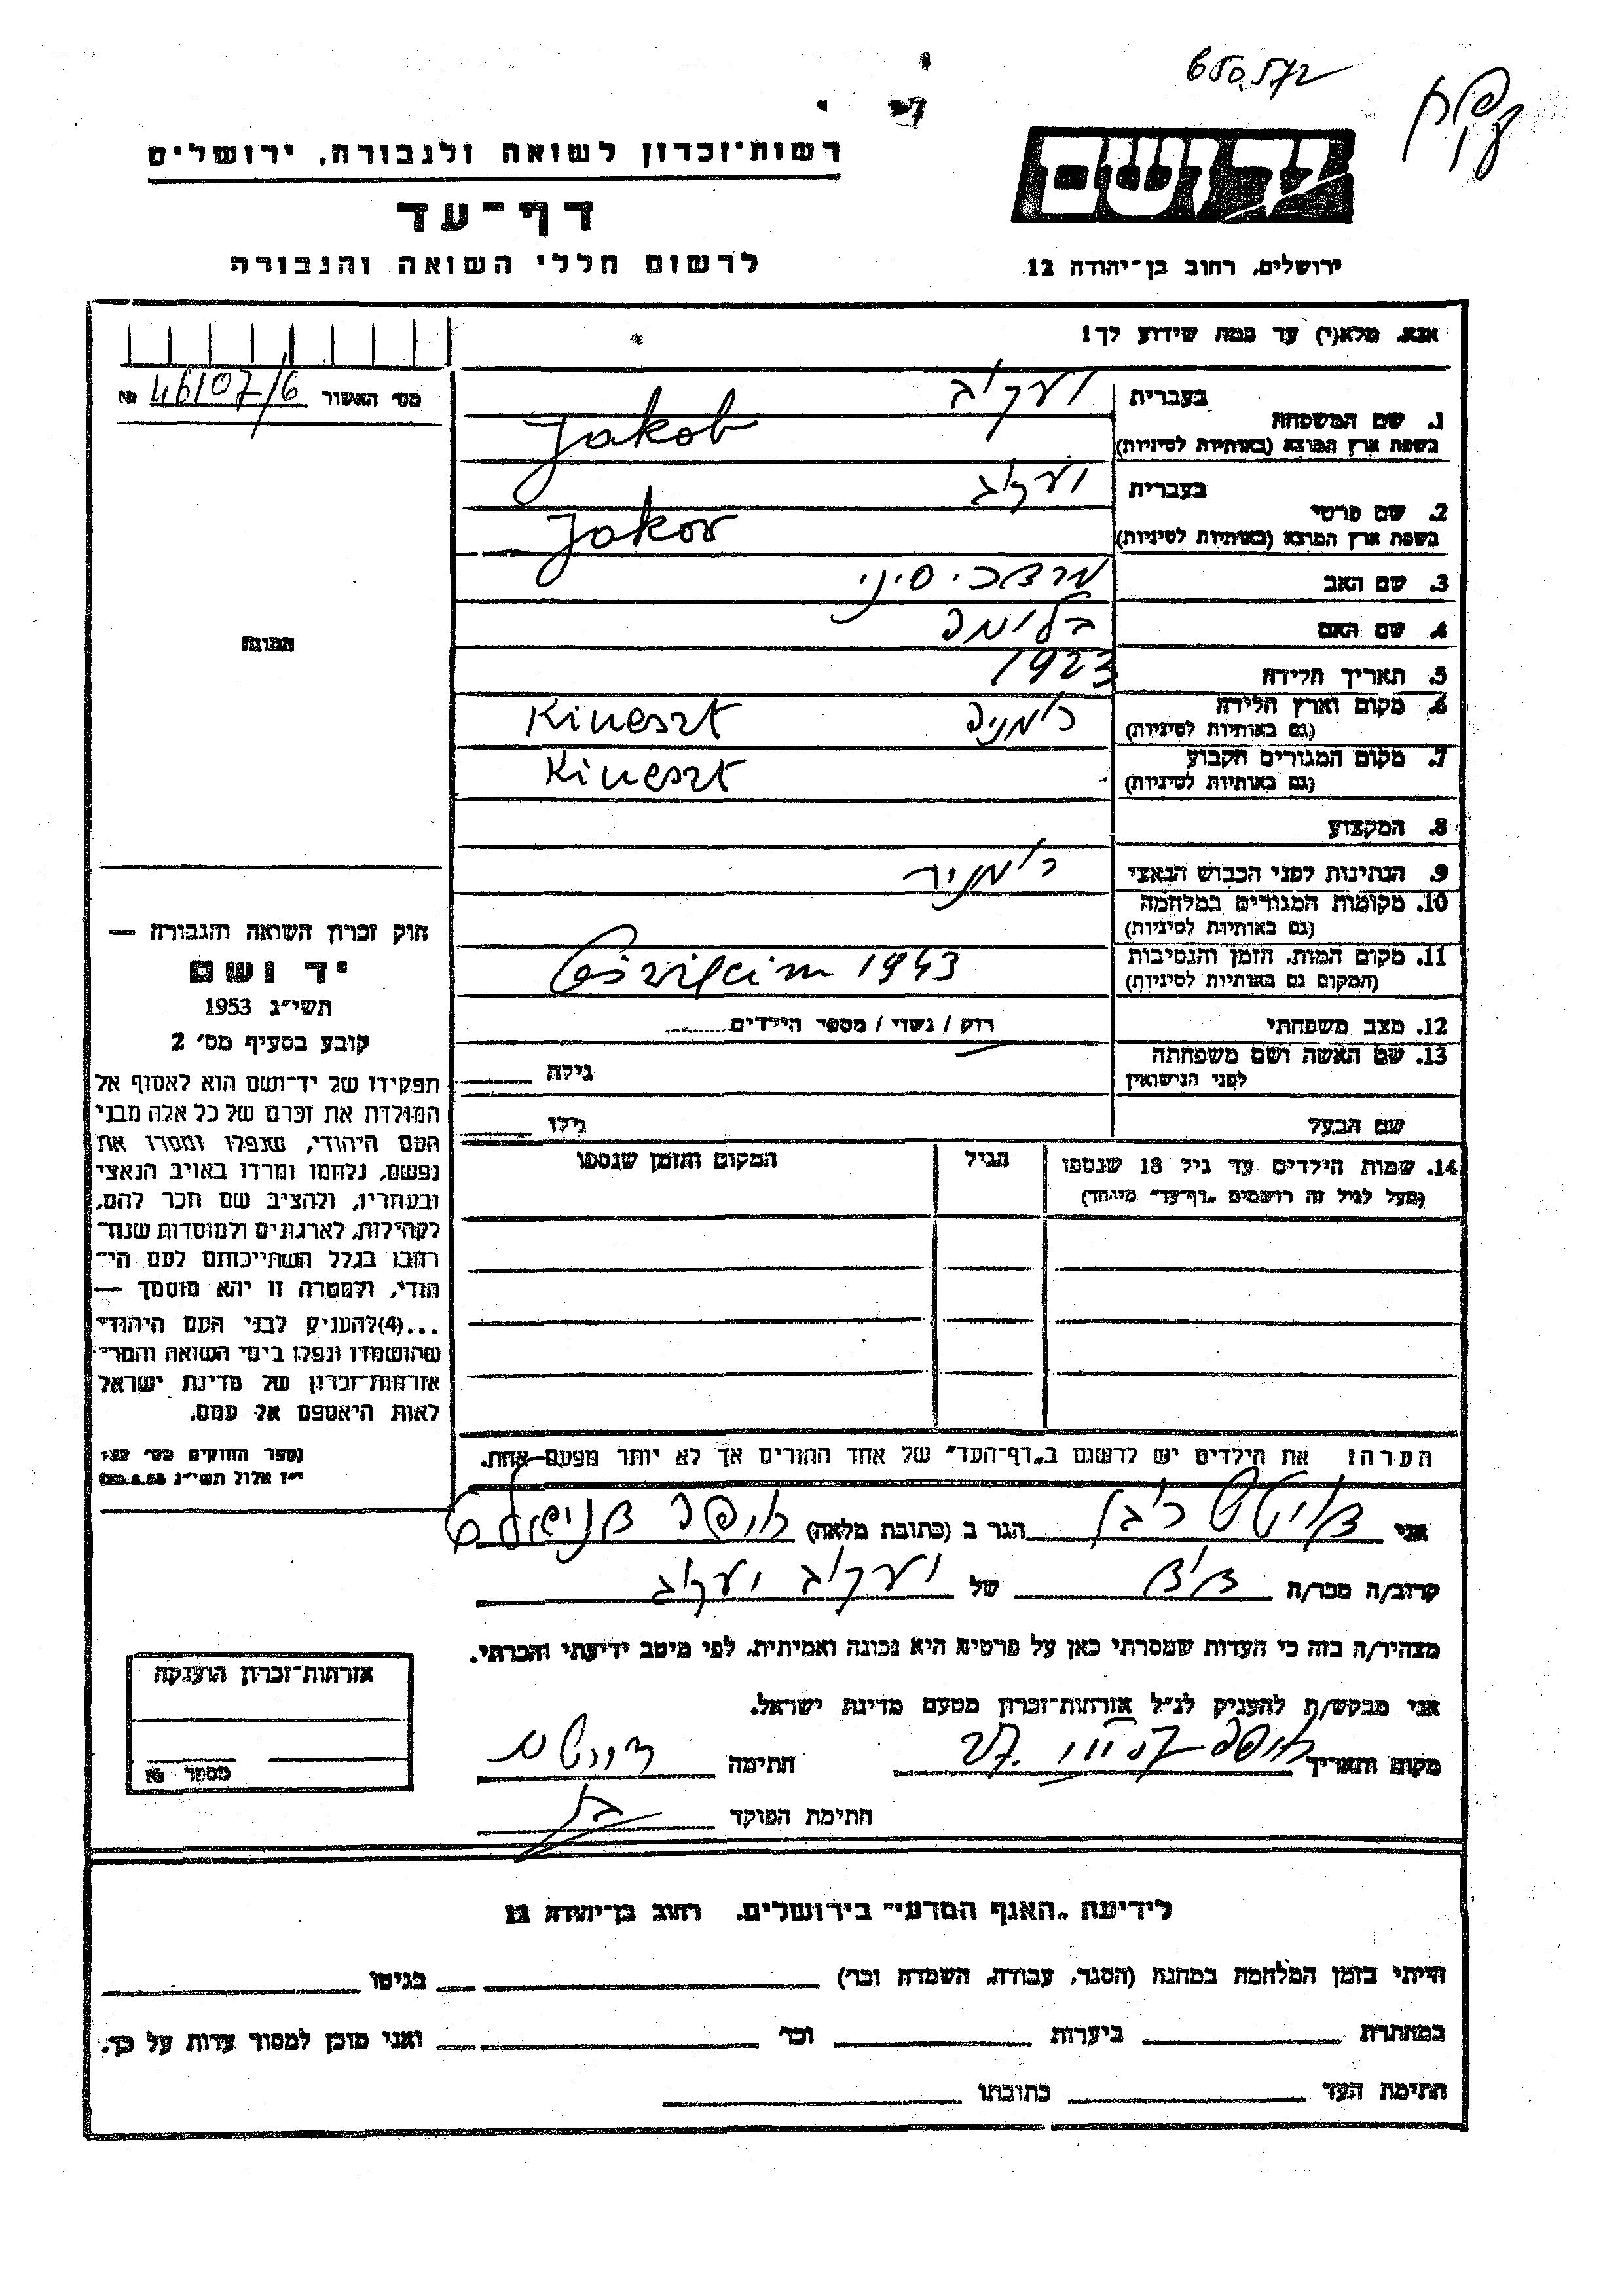 650.572
רשות-זכרון לשואה ולגבורה, ירושלים
יד ושם
דף-עד
לרשום חללי השואה והגבורה
ירושלים, רחוב בן-יהודה 12
אנא, מלא(י) עד כמה שידוע לך!
מס׳ האשור № 46107/6
1. שם המשפחה
בעברית יעקב
בשפת ארץ המוצא (באותיות לטיניות) Jakob
2. שם פרטי
בעברית יעקב
בשפת ארץ המוצא (באותיות לטיניות) Jakov
3. שם האב מרדכי סיני
4. שם האם בלומה
5. תאריך הלידה 1923
6. מקום וארץ הלידה רומניה Kineszt
(גם באותיות לטיניות)
7. מקום המגורים הקבוע Kineszt
(גם באותיות לטיניות)
8. המקצוע
9. הנתינות לפני הכבוש הנאצי רומנית
10. מקומות המגורים במלחמה
(גם באותיות לטיניות)
11. מקום המות, הזמן והנסיבות 1943
(המקום גם באותיות לטיניות)
12. מצב משפחתי רוק / נשוי / מספר הילדים
13. שם האשה ושם משפחתה גילה
לפני הנישואין
שם הבעל גילו
14. שמות הילדים עד גיל 18 שנספו הגיל המקום והזמן שנספו
(מעל לגיל זה רושמים „דף-עד״ מיוחד)
תמונה
חוק זכרון השואה והגבורה —
יד ושם
תשי״ג 1953
קובע בסעיף מס׳ 2
תפקידו של יד-ושם הוא לאסוף אל
המולדת את זכרם של כל אלה מבני
העם היהודי, שנפלו ומסרו את
נפשם, נלחמו ומרדו באויב הנאצי
ובעוזריו, ולהציב שם וזכר להם,
לקהילות, לארגונים ולמוסדות שנח-
רבו בגלל השתייכותם לעם הי-
הודי, ולמטרה זו יהא מוסמך —
...(4) להעניק לבני העם היהודי
שהושמדו ונפלו בימי השואה והמרי
אזרחות-זכרון של מדינת ישראל
לאות היאספם אל עמם.
(ספר החוקים מס׳ 132
י״ז אלול תשי״ג 28.8.53)
הערה: את הילדים יש לרשום ב„דף-העד״ של אחד ההורים אך לא יותר מפעם אחת.
אני הגר ב (כתובת מלאה)
קרוב/ה מכר/ה דוד של יעקב יעקב
מצהיר/ה בזה כי העדות שמסרתי כאן על פרטיה היא נכונה ואמיתית, לפי מיטב ידיעתי והכרתי.
אני מבקש/ת להעניק לנ״ל אזרחות-זכרון מטעם מדינת ישראל.
מקום ותאריך חתימה
חתימת הפוקד
אזרחות-זכרון הוענקה
מספר №
לידיעת „האגף המדעי״ בירושלים, רחוב בן-יהודה 12
הייתי בזמן המלחמה במחנה (הסגר, עבודה, השמדה וכו׳) בגיטו
במחתרת ביערות וכו׳ ואני מוכן למסור עדות על כך.
חתימת העד כתובתו